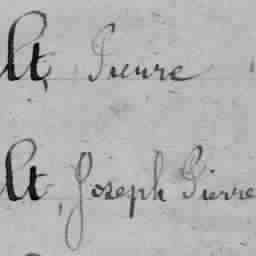 lt, Pierre
lt, Joseph Pierre